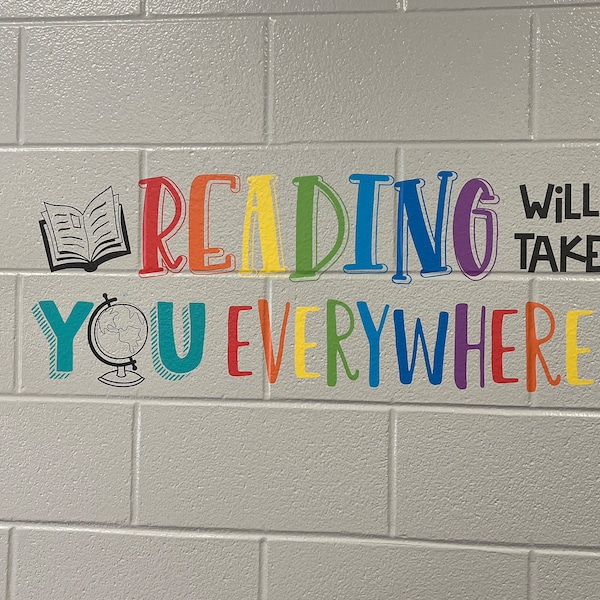 READING
WiLL
TAKE
YOU EVERYWHERE